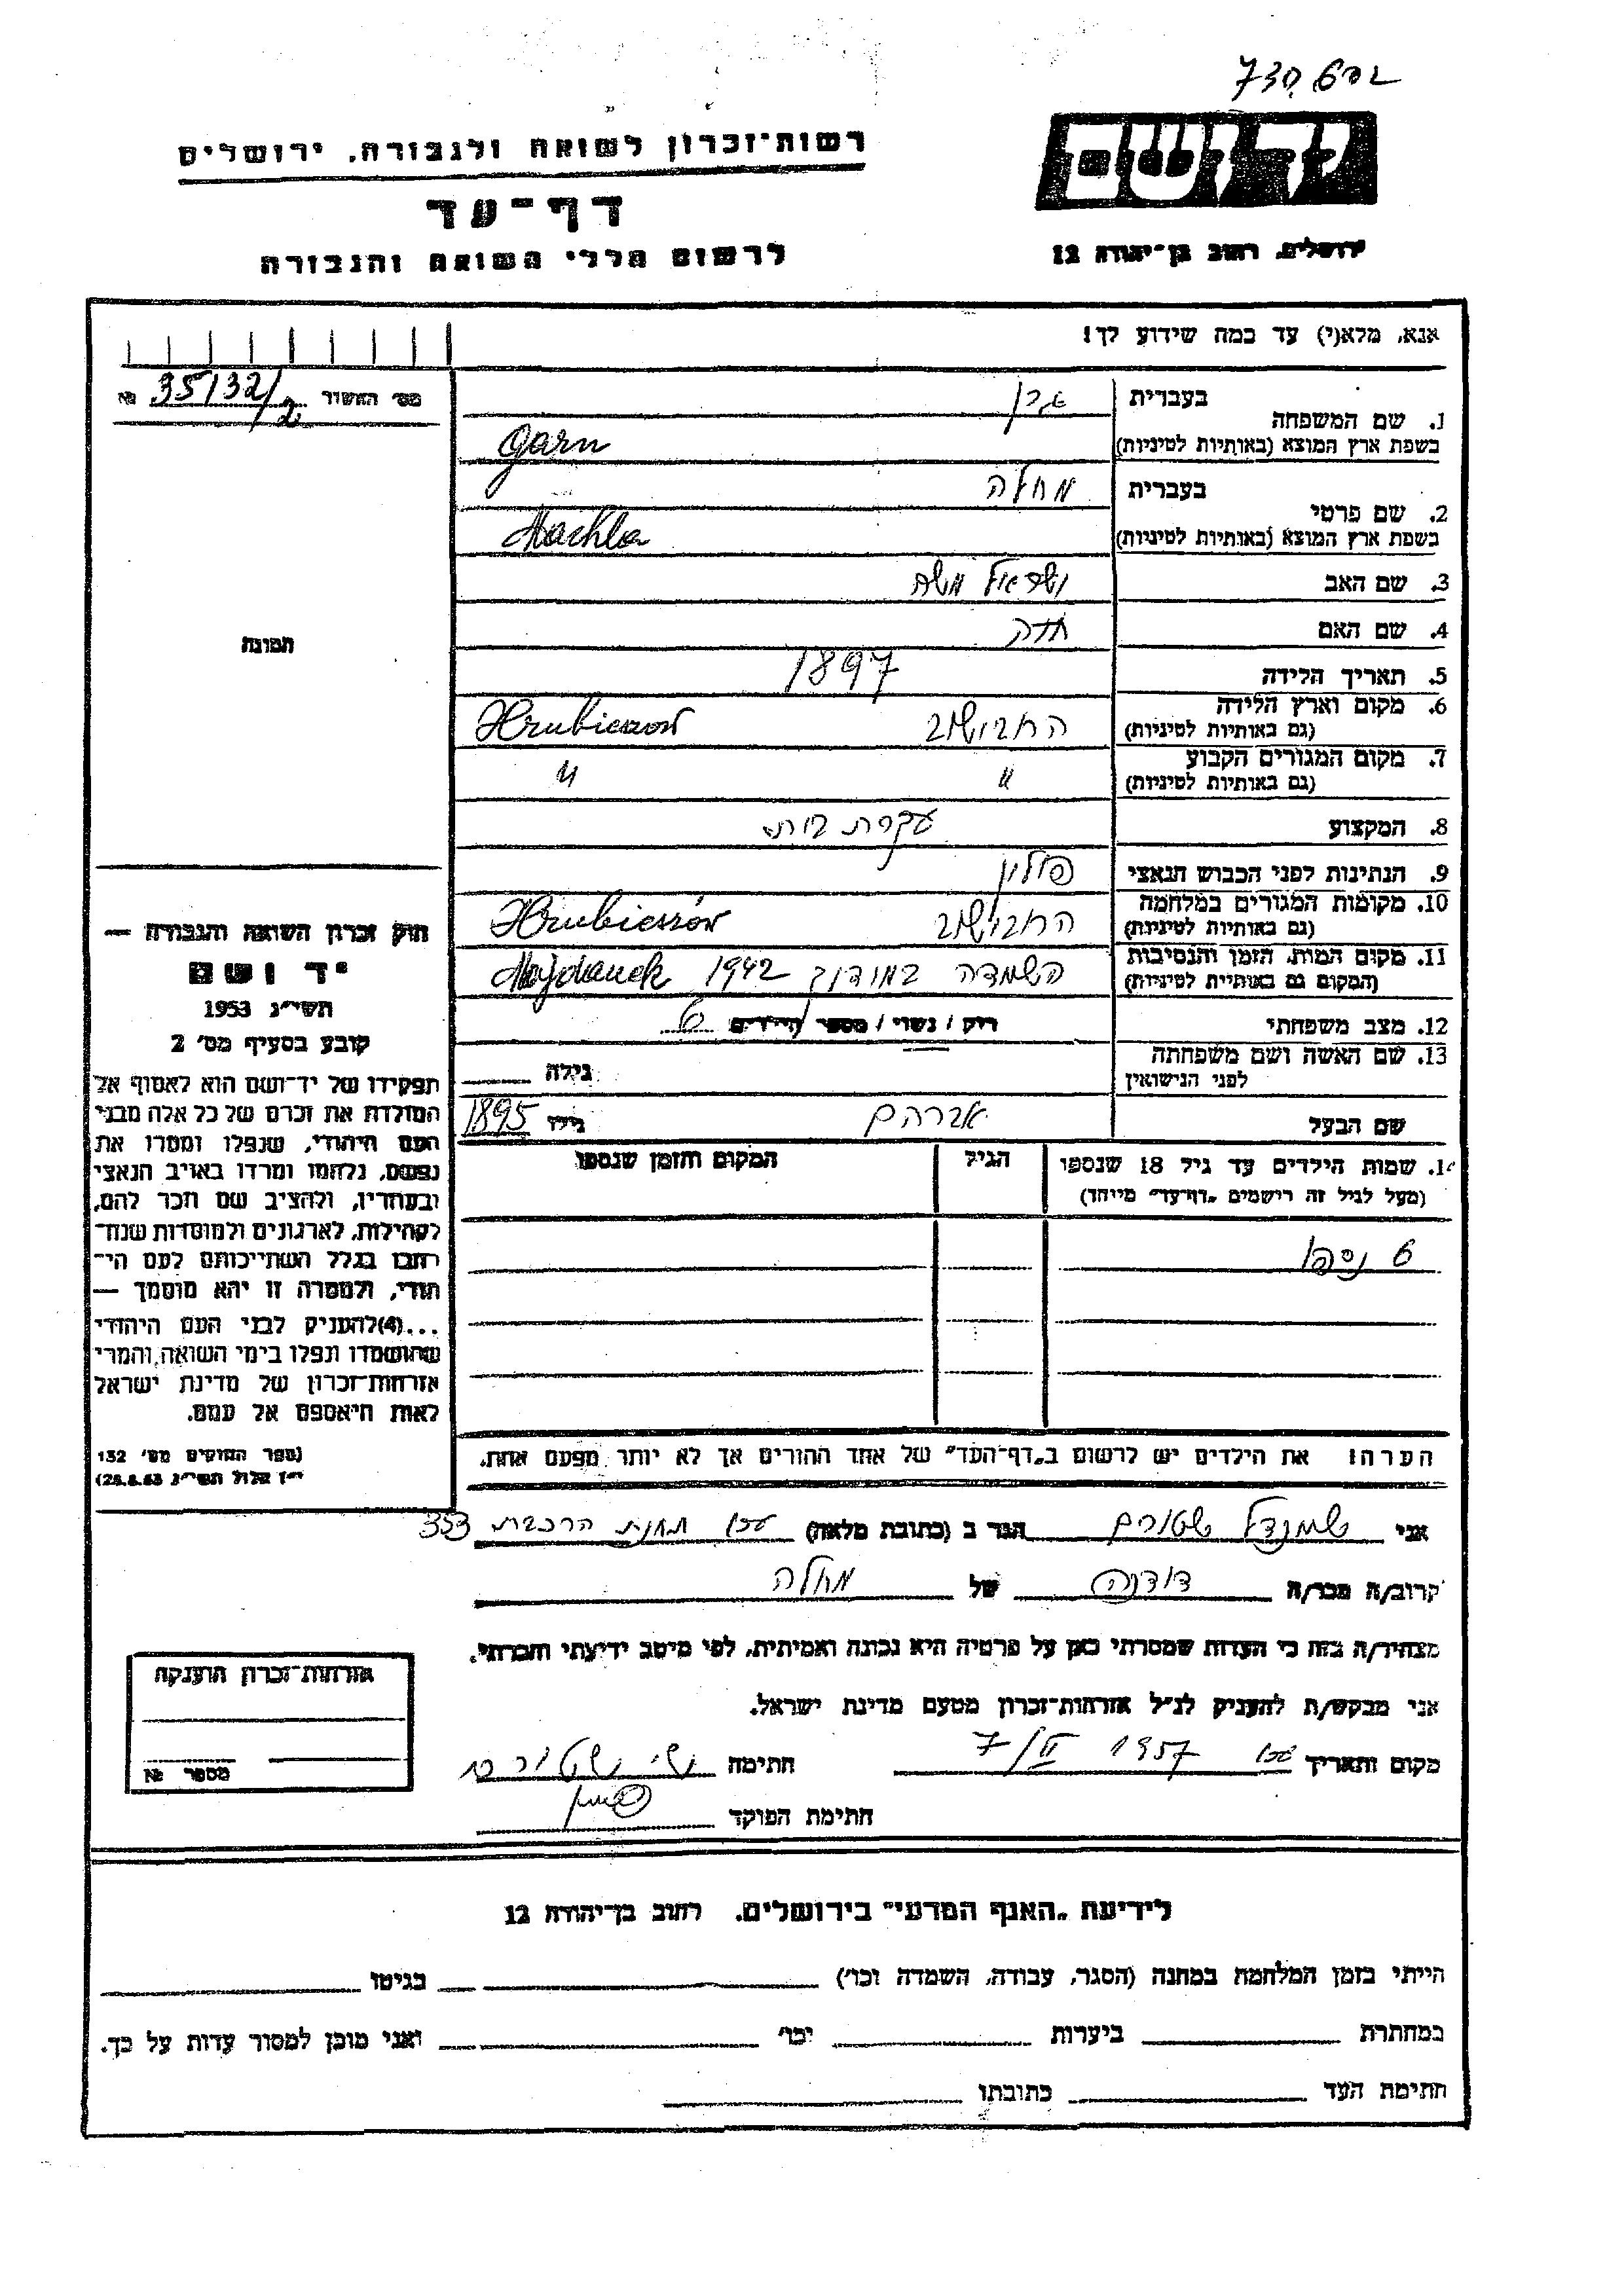 יד ושם
ירושלים, רחוב בן-יהודה 12
רשות-זכרון לשואה ולגבורה, ירושלים
דף-עד
לרשום חללי השואה והגבורה
אנא, מלא(י) עד כמה שידוע לך!
מס' האשור 35132/2 №
1. שם המשפחה
בעברית גרן
בשפת ארץ המוצא (באותיות לטיניות) Garn
2. שם פרטי
בעברית מחלה
בשפת ארץ המוצא (באותיות לטיניות) Machla
3. שם האב ישראל משה
4. שם האם
5. תאריך הלידה 1897
6. מקום וארץ הלידה הרובישוב Hrubieszow
(גם באותיות לטיניות)
7. מקום המגורים הקבוע " "
(גם באותיות לטיניות)
8. המקצוע עקרת בית
9. הנתינות לפני הכבוש הנאצי פולין
10. מקומות המגורים במלחמה הרובישוב Hrubieszów
(גם באותיות לטיניות)
11. מקום המות, הזמן והנסיבות השמדה במידנק 1942 Majdanek
(המקום גם באותיות לטיניות)
12. מצב משפחתי רווק / נשוי / מספר הילדים 6
13. שם האשה ושם משפחתה
לפני הנישואין
גילה
שם הבעל אברהם גילו 1895
14. שמות הילדים עד גיל 18 שנספו
(מעל לגיל זה רישמים "דף-עד" מיוחד)
הגיל
המקום והזמן שנספו
6 ניספו
הערה: את הילדים יש לרשום ב"דף-העד" של אחד ההורים אך לא יותר מפעם אחת.
תמונה
חוק זכרון השואה והגבורה —
יד ושם
תשי"ג 1953
קובע בסעיף מס' 2
תפקידו של יד-ושם הוא לאסוף אל
המולדת את זכרם של כל אלה מבני
העם היהודי, שנפלו ומסרו את
נפשם, נלחמו ומרדו באויב הנאצי
ובעוזריו, ולהציב שם וזכר להם,
לקהילות, לארגונים ולמוסדות שנח-
רבו בגלל השתייכותם לעם הי-
הודי, ולמטרה זו יהא מוסמך —
...(4)להעניק לבני העם היהודי
שהושמדו ונפלו בימי השואה והמרי
אזרחות-זכרון של מדינת ישראל
לאות היאספם אל עמם.
(ספר החוקים מס' 132
י"ז אלול תשי"ג 28.8.53)
אני שטורם הגר ב (כתובת מלאה) עכו תחנת הרכבת 353
קרוב/ה מכר/ה דודנה של מחלה
מצהיר/ה בזה כי העדות שמסרתי כאן על פרטיה היא נכונה ואמיתית, לפי מיטב ידיעתי והכרתי.
אני מבקש/ת להעניק לנ"ל אזרחות-זכרון מטעם מדינת ישראל.
מקום ותאריך עכו 1957 7/II חתימה
חתימת הפוקד
אזרחות-זכרון הוענקה
מספר №
לידיעת "האגף המדעי" בירושלים, רחוב בן-יהודה 12
הייתי בזמן המלחמה במחנה (הסגר, עבודה, השמדה וכו') בגיטו
במחתרת ביערות וכו' ואני מוכן למסור עדות על כך.
חתימת העד כתובתו